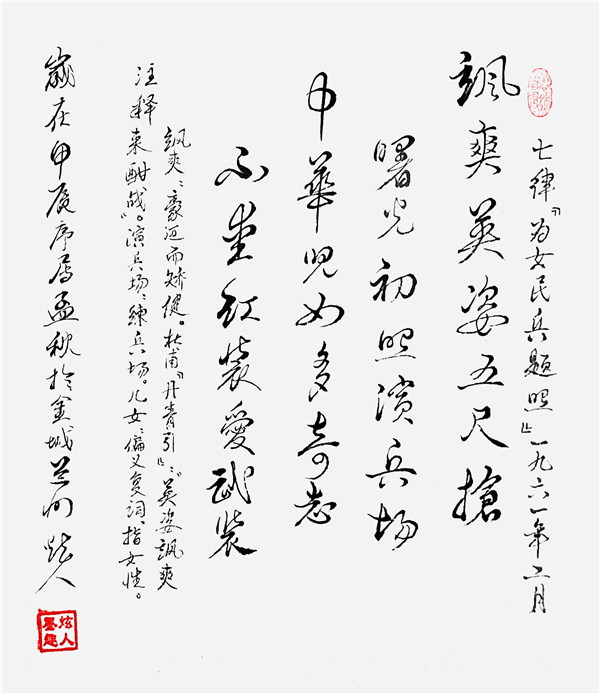 七律《为女民兵题照》一九六一年二月
颯爽英姿五尺槍
曙光初照演兵场
中華兒女多奇志
不愛红裝愛武裝
注释
飒爽:豪迈而矫健。杜甫《丹青引》:“英姿飒爽
来酣战”。演兵场:练兵场。儿女:偏义复词,指女性。
歲在甲辰序属孟秋於金城兰州炫人
炫人
墨趣